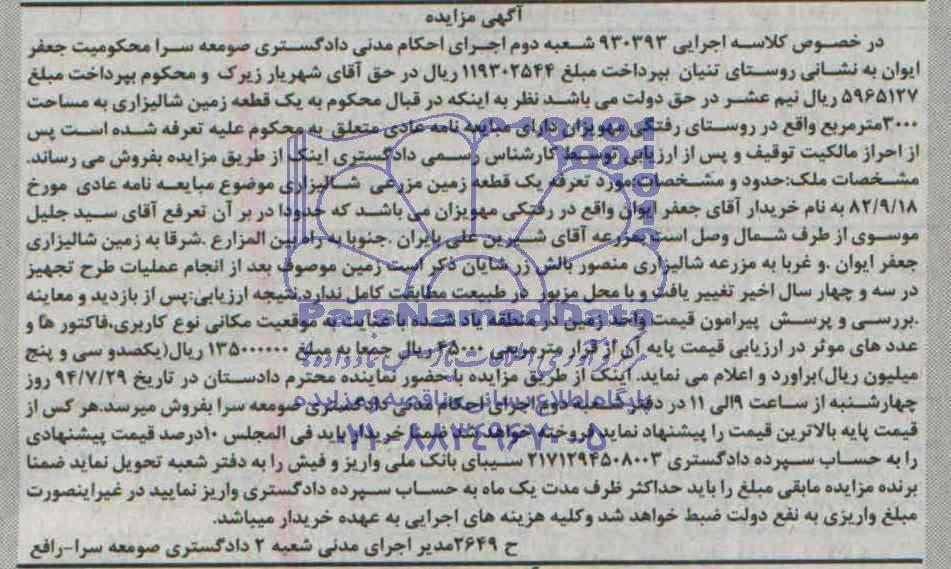 آگهی مزایده
در خصوص کلاسه اجرایی ۹۳۰۳۹۳ شعبه دوم اجرای احکام مدنی دادگستری صومعه سرا محکومیت جعفر
ایوان به نشانی روستای تنیان بپرداخت مبلغ ۱۱۹۳۰۲۵۴۴ ریال در حق آقای شهریار زیرک و محکوم بپرداخت مبلغ
۵۹۶۵۱۲۷ ریال نیم عشر در حق دولت می باشد نظر به اینکه در قبال محکوم به یک قطعه زمین شالیزاری به مساحت
۳۰۰۰مترمربع واقع در روستای رفتکی مهویزان دارای مبایعه نامه عادی متعلق به محکوم علیه تعرفه شده است پس
از احراز مالکیت توقیف و پس از ارزیابی توسط کارشناس رسمی دادگستری اینک از طریق مزایده بفروش می رساند.
مشخصات ملک:حدود و مشخصات:مورد تعرفه یک قطعه زمین مزرعی شالیزاری موضوع مبایعه نامه عادی مورخ
۸۲/۹/۱۸ به نام خریدار آقای جعفر ایوان واقع در رفتکی مهویزان می باشد که حدودا در بر آن تعرفع آقای سید جلیل
موسوی از طرف شمال وصل است بمزرعه آقای شیرین علی یایران .جنوبا به راه بین المزارع .شرقا به زمین شالیزاری
جعفر ایوان .و غربا به مزرعه شالیزاری منصور بالش زر شایان ذکر است زمین موصوف بعد از انجام عملیات طرح تجهیز
در سه و چهار سال اخیر تغییر یافت و با محل مزبور در طبیعت مطابقت کامل ندارد.نتیجه ارزیابی:پس از بازدید و معاینه
.بررسی و پرسش پیرامون قیمت واحد زمین در منطقه یاد شده با عنایت به موقعیت مکانی نوع کاربری،فاکتور ها و
عدد های موثر در ارزیابی قیمت پایه آن از قرار مترمربعی ۴۵۰۰۰ ریال جمعا به مبلغ ۱۳۵۰۰۰۰۰۰ ریال(یکصدو سی و پنج
میلیون ریال)براورد و اعلام می نماید. اینک از طریق مزایده با حضور نماینده محترم دادستان در تاریخ ۹۴/۷/۲۹ روز
چهارشنبه از ساعت ۹الی ۱۱ در دفتر شعبه دوم اجرای احکام مدنی دادگستری صومعه سرا بفروش میرسد.هر کس از
قیمت پایه بالاترین قیمت را پیشنهاد نماید فروخته خواهد شد ضمنا خریدار باید فی المجلس ۱۰درصد قیمت پیشنهادی
را به حساب سپرده دادگستری ۲۱۷۱۲۹۴۵۰۸۰۰۳ سیبای بانک ملی واریز و فیش را به دفتر شعبه تحویل نماید ضمنا
برنده مزایده مابقی مبلغ را باید حداکثر ظرف مدت یک ماه به حساب سپرده دادگستری واریز نمایید در غیراینصورت
مبلغ واریزی به نفع دولت ضبط خواهد شد وکلیه هزینه های اجرایی به عهده خریدار میباشد.
ح ۲۶۴۹مدیر اجرای مدنی شعبه ۲ دادگستری صومعه سرا-رافع
ParsNamadData
پایگاه اطلاع رسانی مناقصه و مزایده
۰۲۱-۸۸۳۴۹۶۷۰-۵